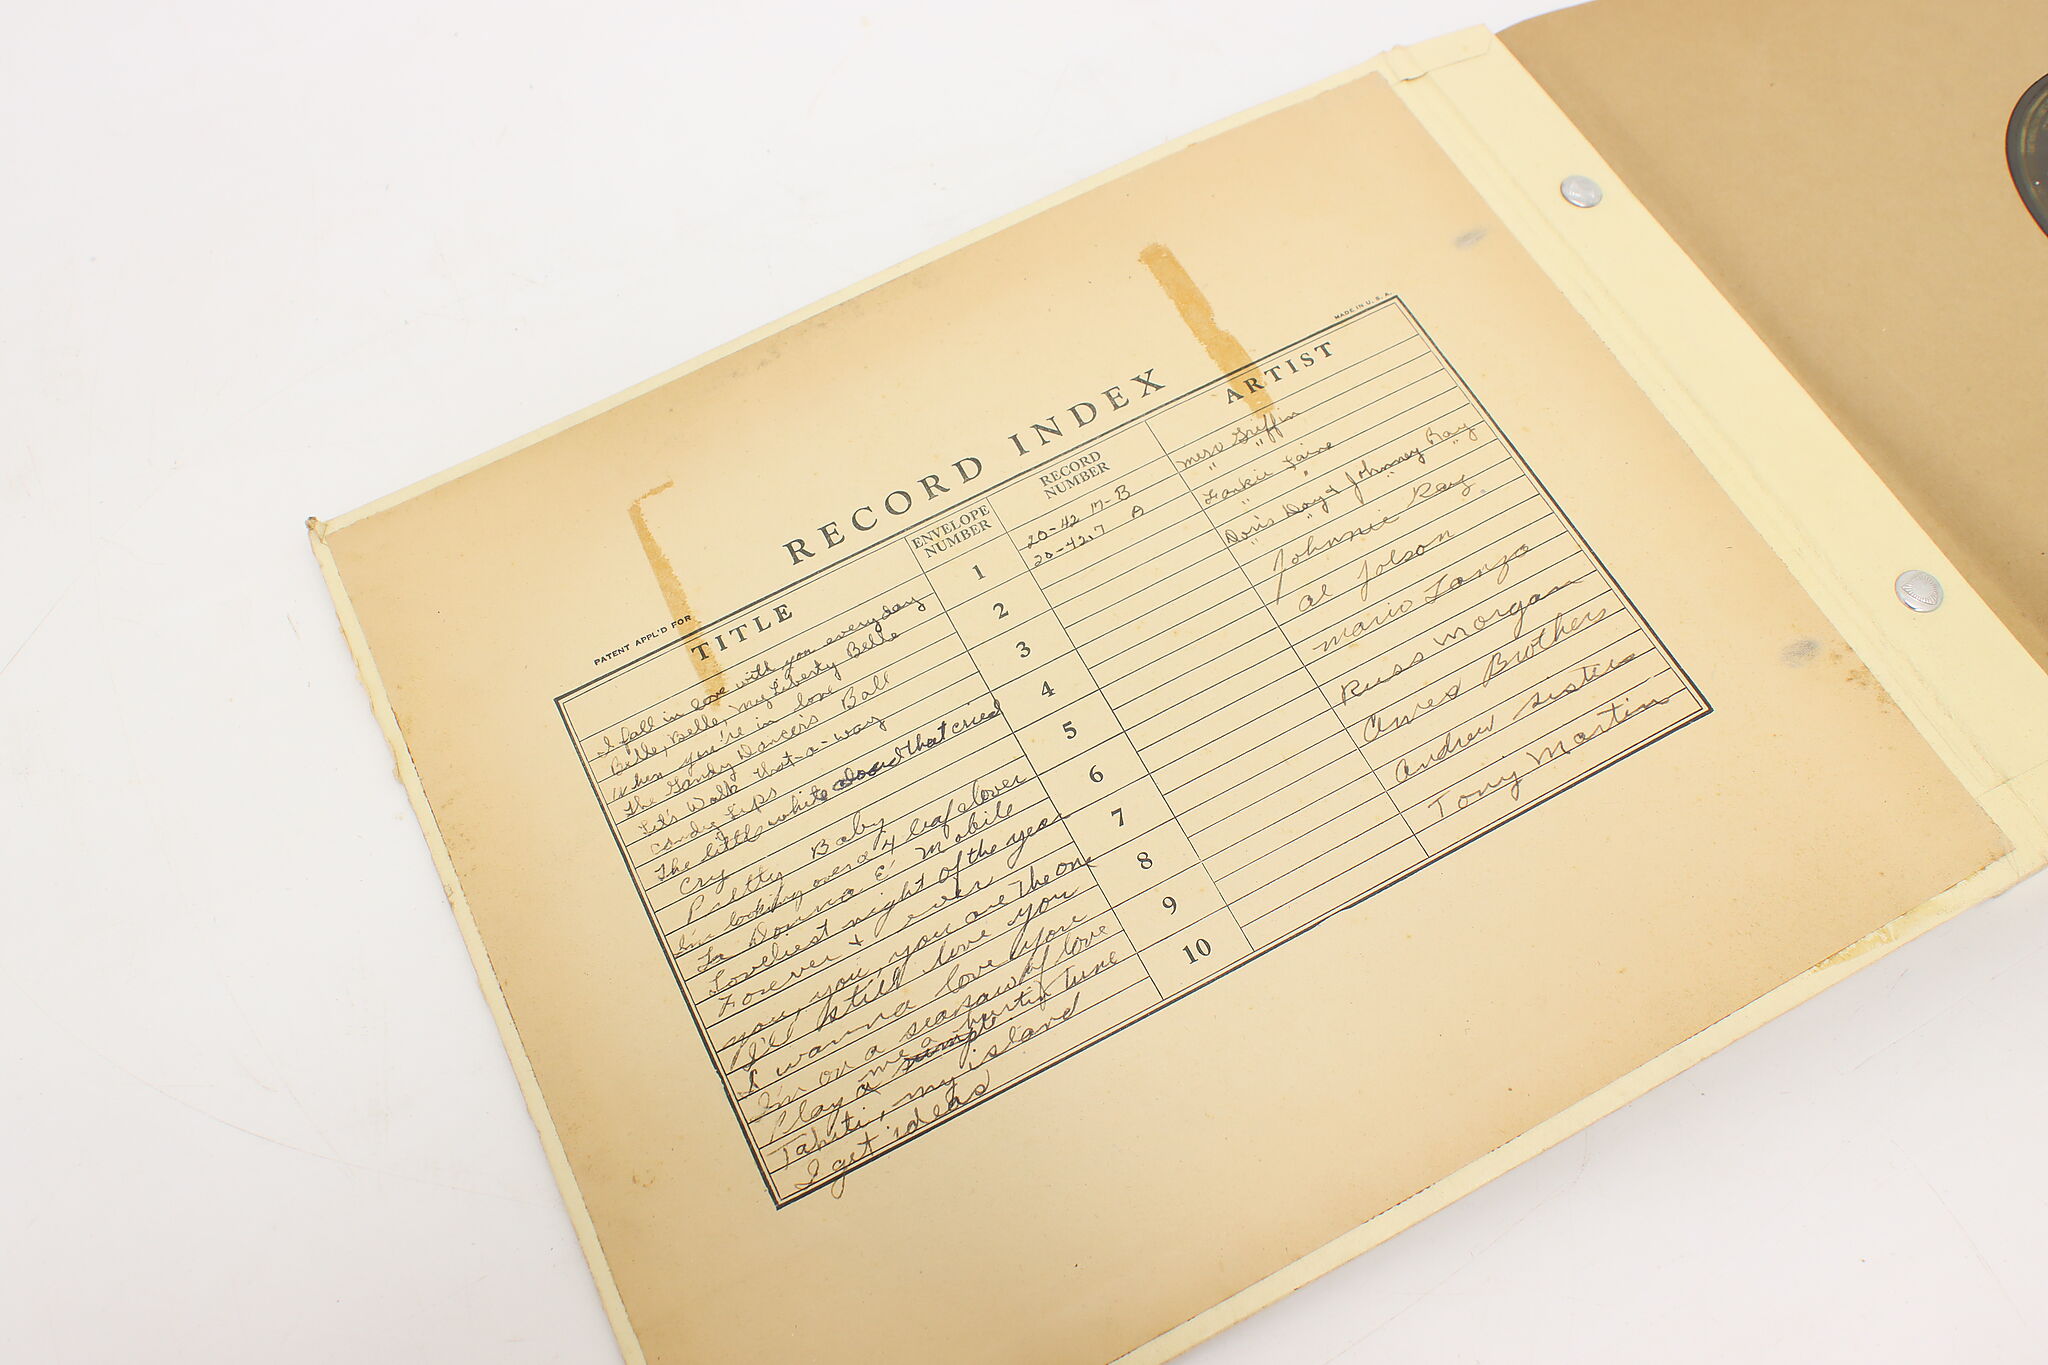 PATENT APPL'D FOR
MADE IN U.S.A.
RECORD INDEX
TITLE ENVELOPE NUMBER RECORD NUMBER ARTIST
I fall in love with you everyday 1 20-42 17-B Merv Griffin
Belle, Belle, my Liberty Belle 20-42.7 A " "
When you're in love 2 Frankie Laine
The Gandy Dancers Ball " "
Let's Walk that-a-way 3 Doris Day & Johnney Ray
Candy Lips " " " "
The little white cloud that cried 4 Johnnie Ray
Cry
Pretty Baby 5 Al Jolson
I'm looking over a 4 leaf clover
La Donna E' Mobile 6 Mario Lanza
Loveliest night of the year
Forever & ever 7 Russ Morgan
you, you, you are the one
I'll still love you 8 Ames Brothers
I wanna love you
I'm on a seasaw of love 9 Andrew Sisters
Play me a hurtin tune
Tahiti, my island 10 Tony Martin
I get ideas